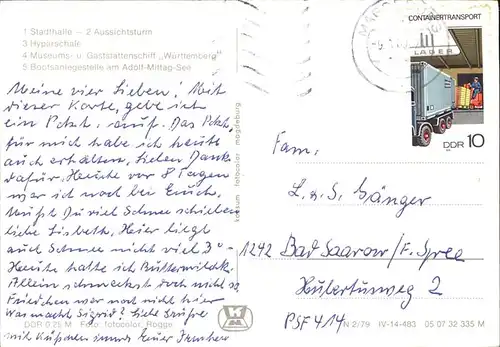 1 Stadthalle – 2 Aussichtsturm
3 Hyparschale
4 Museums- u. Gaststättenschiff „Württemberg"
5 Bootsanlegestelle am Adolf-Mittag-See
Meine vier Lieben! Mit
dieser Karte, gebe ich
ein Pckch. auf. Das Pckch.
für mich habe ich heute
auch erhalten, lieben Dank
dafür. Heute vor 8 Tagen
war ich noch bei Euch.
Mußt Du viel Schnee schieben
liebe Lisbeth. Hier liegt
auch Schnee nicht viel 3°-
Heute hatte ich Buttermilchk.
Allein schmeckst doch nicht so
Friedchen war noch nicht hier
Was macht Sigrid? Liebe Grüße
mit Küßchen immer Eure
DDR 0,25 M Foto: fotocolor, Rogge
kunstum fotocolor magdeburg
CONTAINERTRANSPORT
LAGER
DDR 10
Fam.
L. u. S. Gänger
1242 Bad Saarow/F. Spree
Hubertusweg 2
PSF 414
N 2/79 IV-14-483 05 07 32 335 M